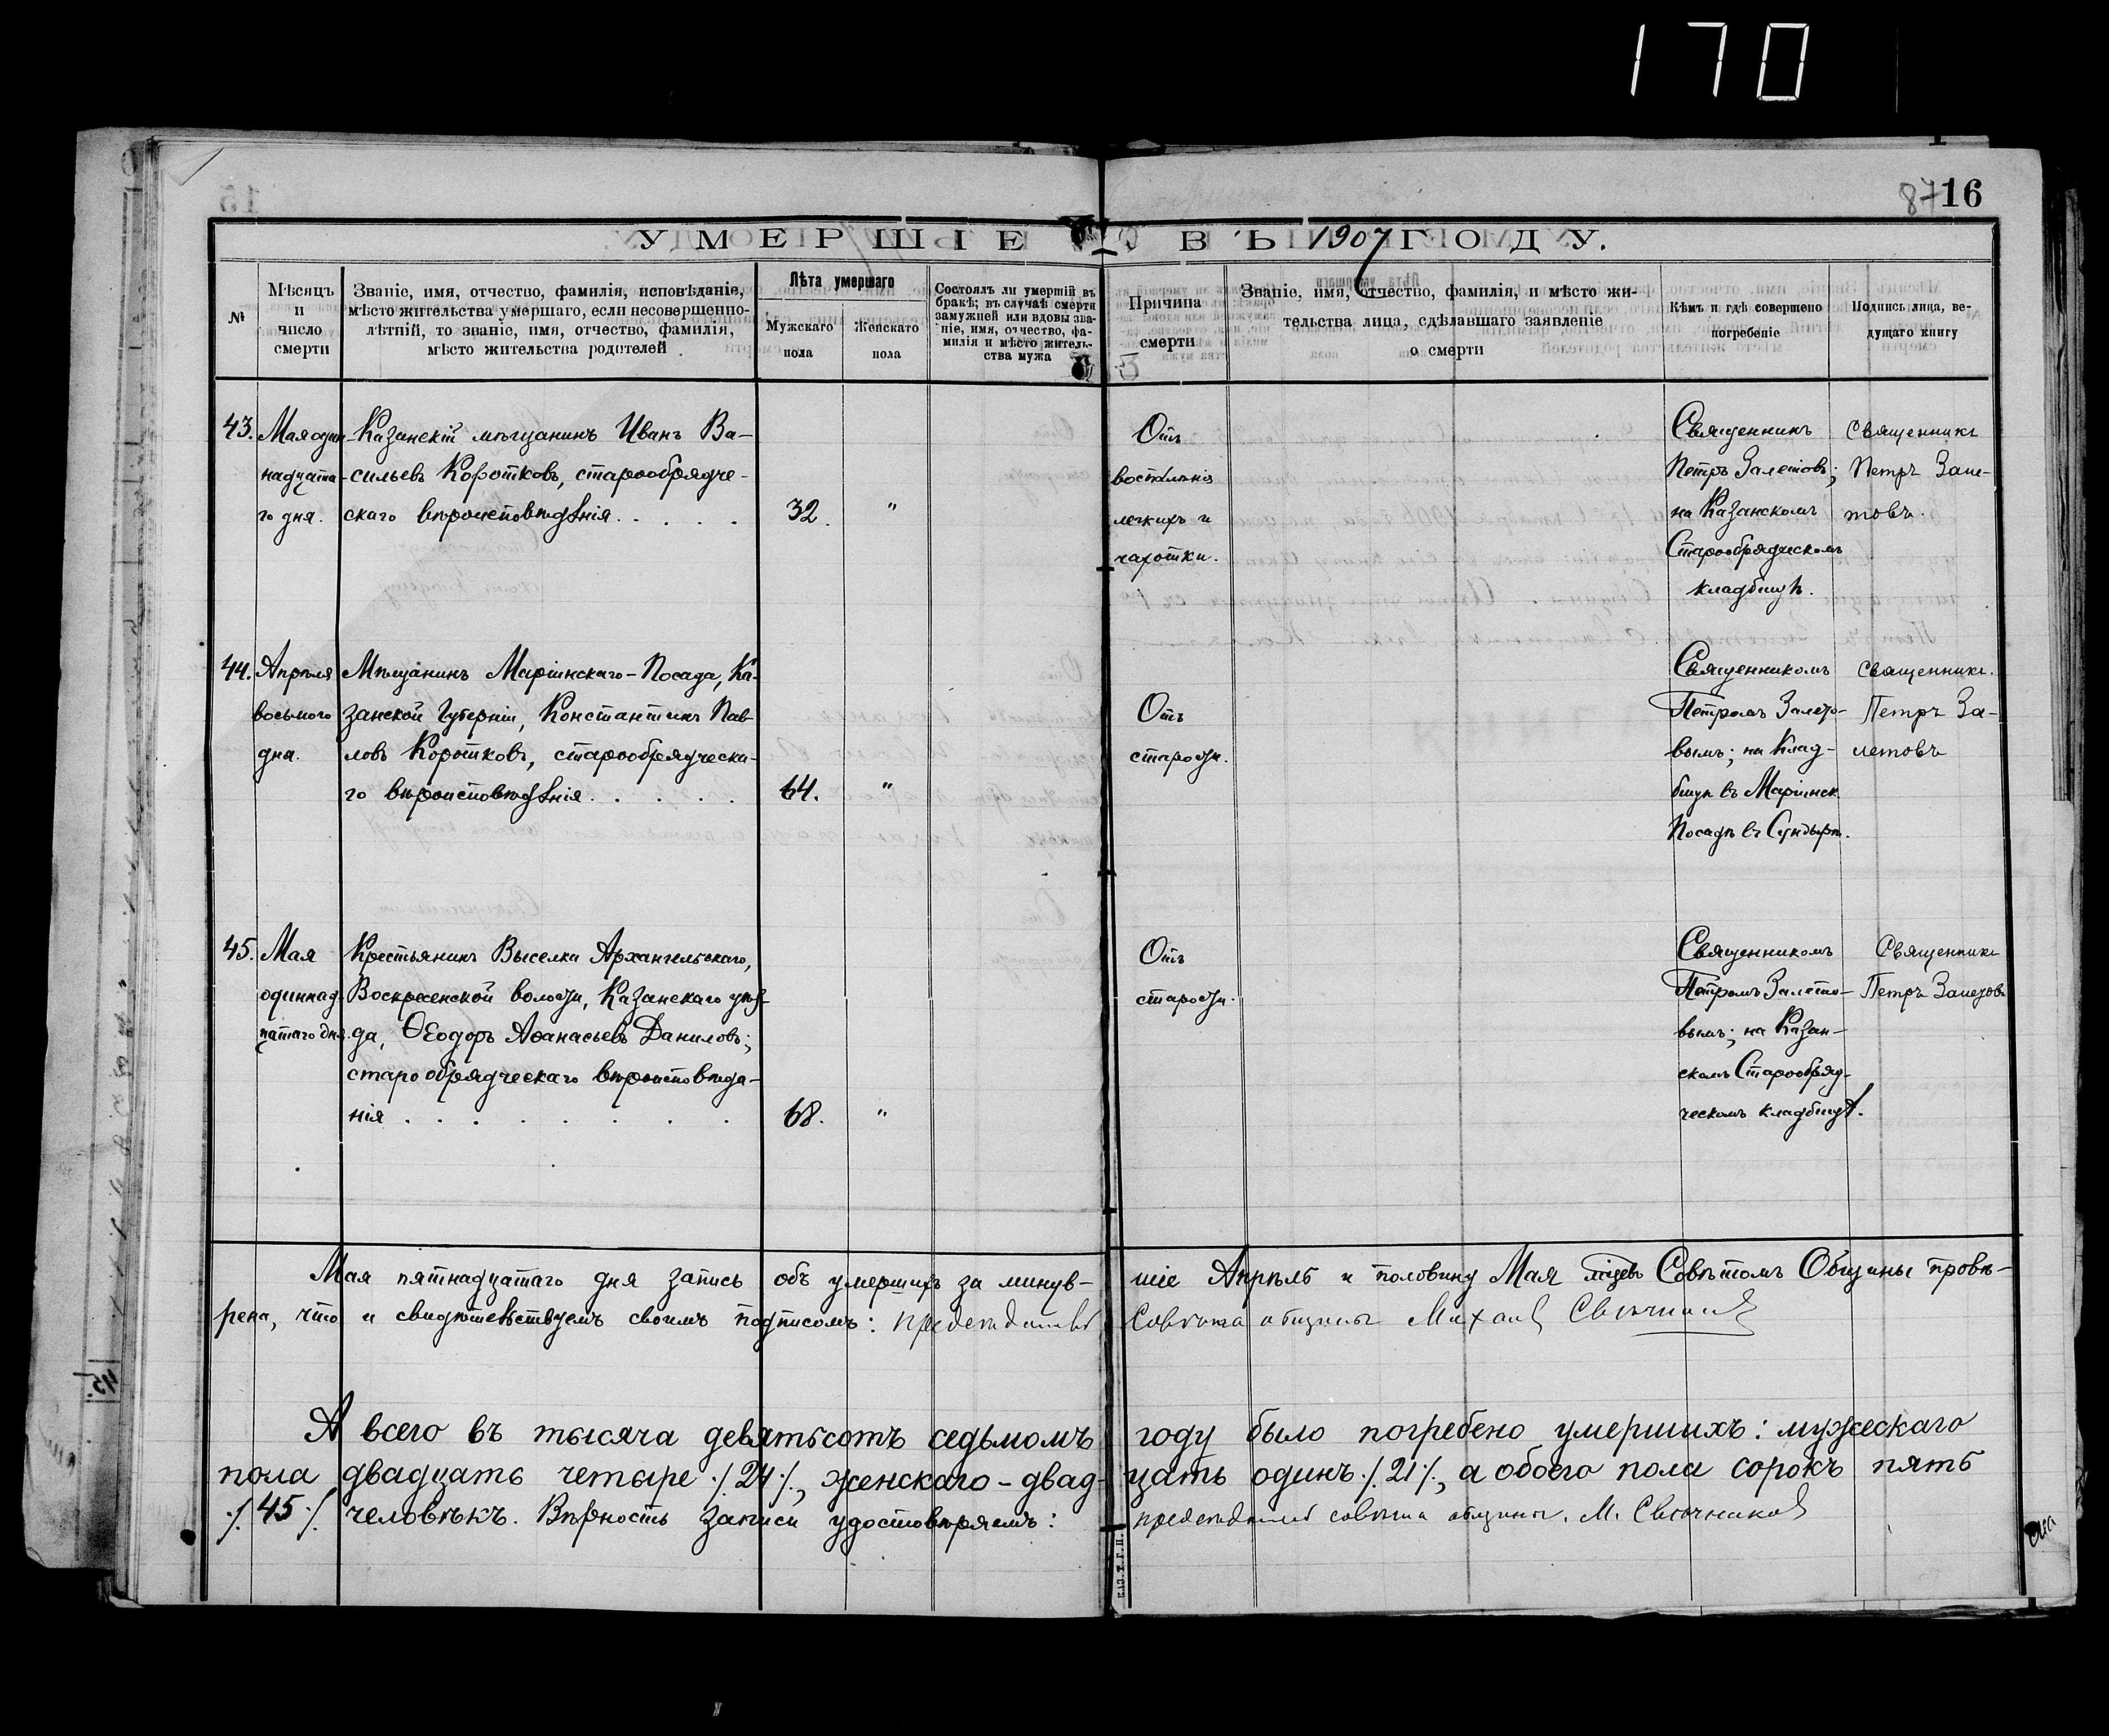 170
16
УМЕРШІЕ ВЪ 1907 ГОДУ.
№
Мѣсяцъ
и
число
смерти
Званіе, имя, отчество, фамилія, исповѣданіе,
мѣсто жительства умершаго, если несовершенно-
лѣтній, то званіе, имя, отчество, фамилія,
мѣсто жительства родителей
Лѣта умершаго
Мужскаго
пола
Женскаго
пола
Состоялъ ли умершій въ
бракѣ; въ случаѣ смерти
замужней или вдовы зва-
ніе, имя, отчество, фа-
милія и мѣсто житель-
ства мужа
Причина
смерти
Званіе, имя, отчество, фамилія, и мѣсто жи-
тельства лица, сдѣлавшаго заявленіе
о смерти
Кѣмъ и гдѣ совершено
погребеніе
Подпись лица, ве-
дущаго книгу
43.
Мая один-
надцата-
го дня.
Казанскій мѣщанинъ Иванъ Ва-
сильевъ Коротковъ, старообрядче-
скаго вѣроисповѣданія . . . .
32.
"
Отъ
воспаленія
легкихъ и
чахотки.
Священникъ
Петръ Залетовъ;
на Казанскомъ
Старообрядческомъ
кладбищѣ.
Священникъ
Петръ Зале-
товъ.
44.
Апрѣля
восьмого
дня.
Мѣщанинъ Маріинскаго-Посада, Ка-
занской Губерніи, Константинъ Пав-
ловъ Коротковъ, старообрядческа-
го вѣроисповѣданія . . . . .
64.
"
Отъ
старости.
Священникомъ
Петромъ Залето-
вымъ; на Клад-
бищѣ въ Маріинск.
Посадѣ въ Сундырѣ.
Священникъ.
Петръ За-
летовъ
45.
Мая
одиннад-
цатаго дня.
Крестьянинъ Выселка Архангельскаго,
Воскресенской волости, Казанскаго уѣз-
да, Ѳеодоръ Аѳанасьевъ Даниловъ;
старообрядческаго вѣроисповѣда-
нія . . . . . . .
68.
"
Отъ
старости.
Священникомъ
Петромъ Залето-
вымъ; на Казан-
скомъ Старообряд-
ческомъ кладбищѣ.
Священникъ
Петръ Залетовъ
Мая пятнадцатаго дня запись объ умершихъ за минув-шіе Апрѣль и половину Мая мѣсяцевъ Совѣтомъ Общины провѣ-
рена, что и свидѣтельствуемъ своимъ подписомъ: председатель Совѣта общины Михаил Свѣчников
А всего въ тысяча девятьсотъ седьмомъ году было погребено умершихъ: мужескаго
пола двадцать четыре ./.24./., женскаго - двад-цать одинъ ./.21./., а обоего пола сорокъ пять
./.45./. человѣкъ. Вѣрность записи удостовѣряемъ: председатель совѣта общины. М. Свѣчников
КАЗ. Т. Г. П.